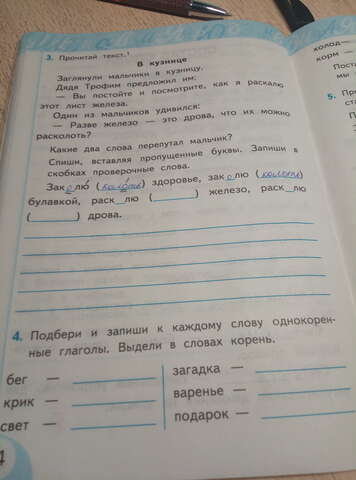 3. Прочитай текст.¹
В кузнице
Заглянули мальчики в кузницу.
Дядя Трофим предложил им:
— Вы постойте и посмотрите, как я раскалю
этот лист железа.
Один из мальчиков удивился:
— Разве железо — это дрова, что их можно
расколоть?
Какие два слова перепутал мальчик?
Спиши, вставляя пропущенные буквы. Запиши в
скобках проверочные слова.
Зак_лю́ ( ) здоровье, зак о лю (колоти)
булавкой, раск_лю ( ) железо, раск_лю
( ) дрова.
4. Подбери и запиши к каждому слову однокорен-
ные глаголы. Выдели в словах корень.
бег —
крик —
свет —
загадка —
варенье —
подарок —
4
холод—
корм —
Пост
мы
5. Пр
ст